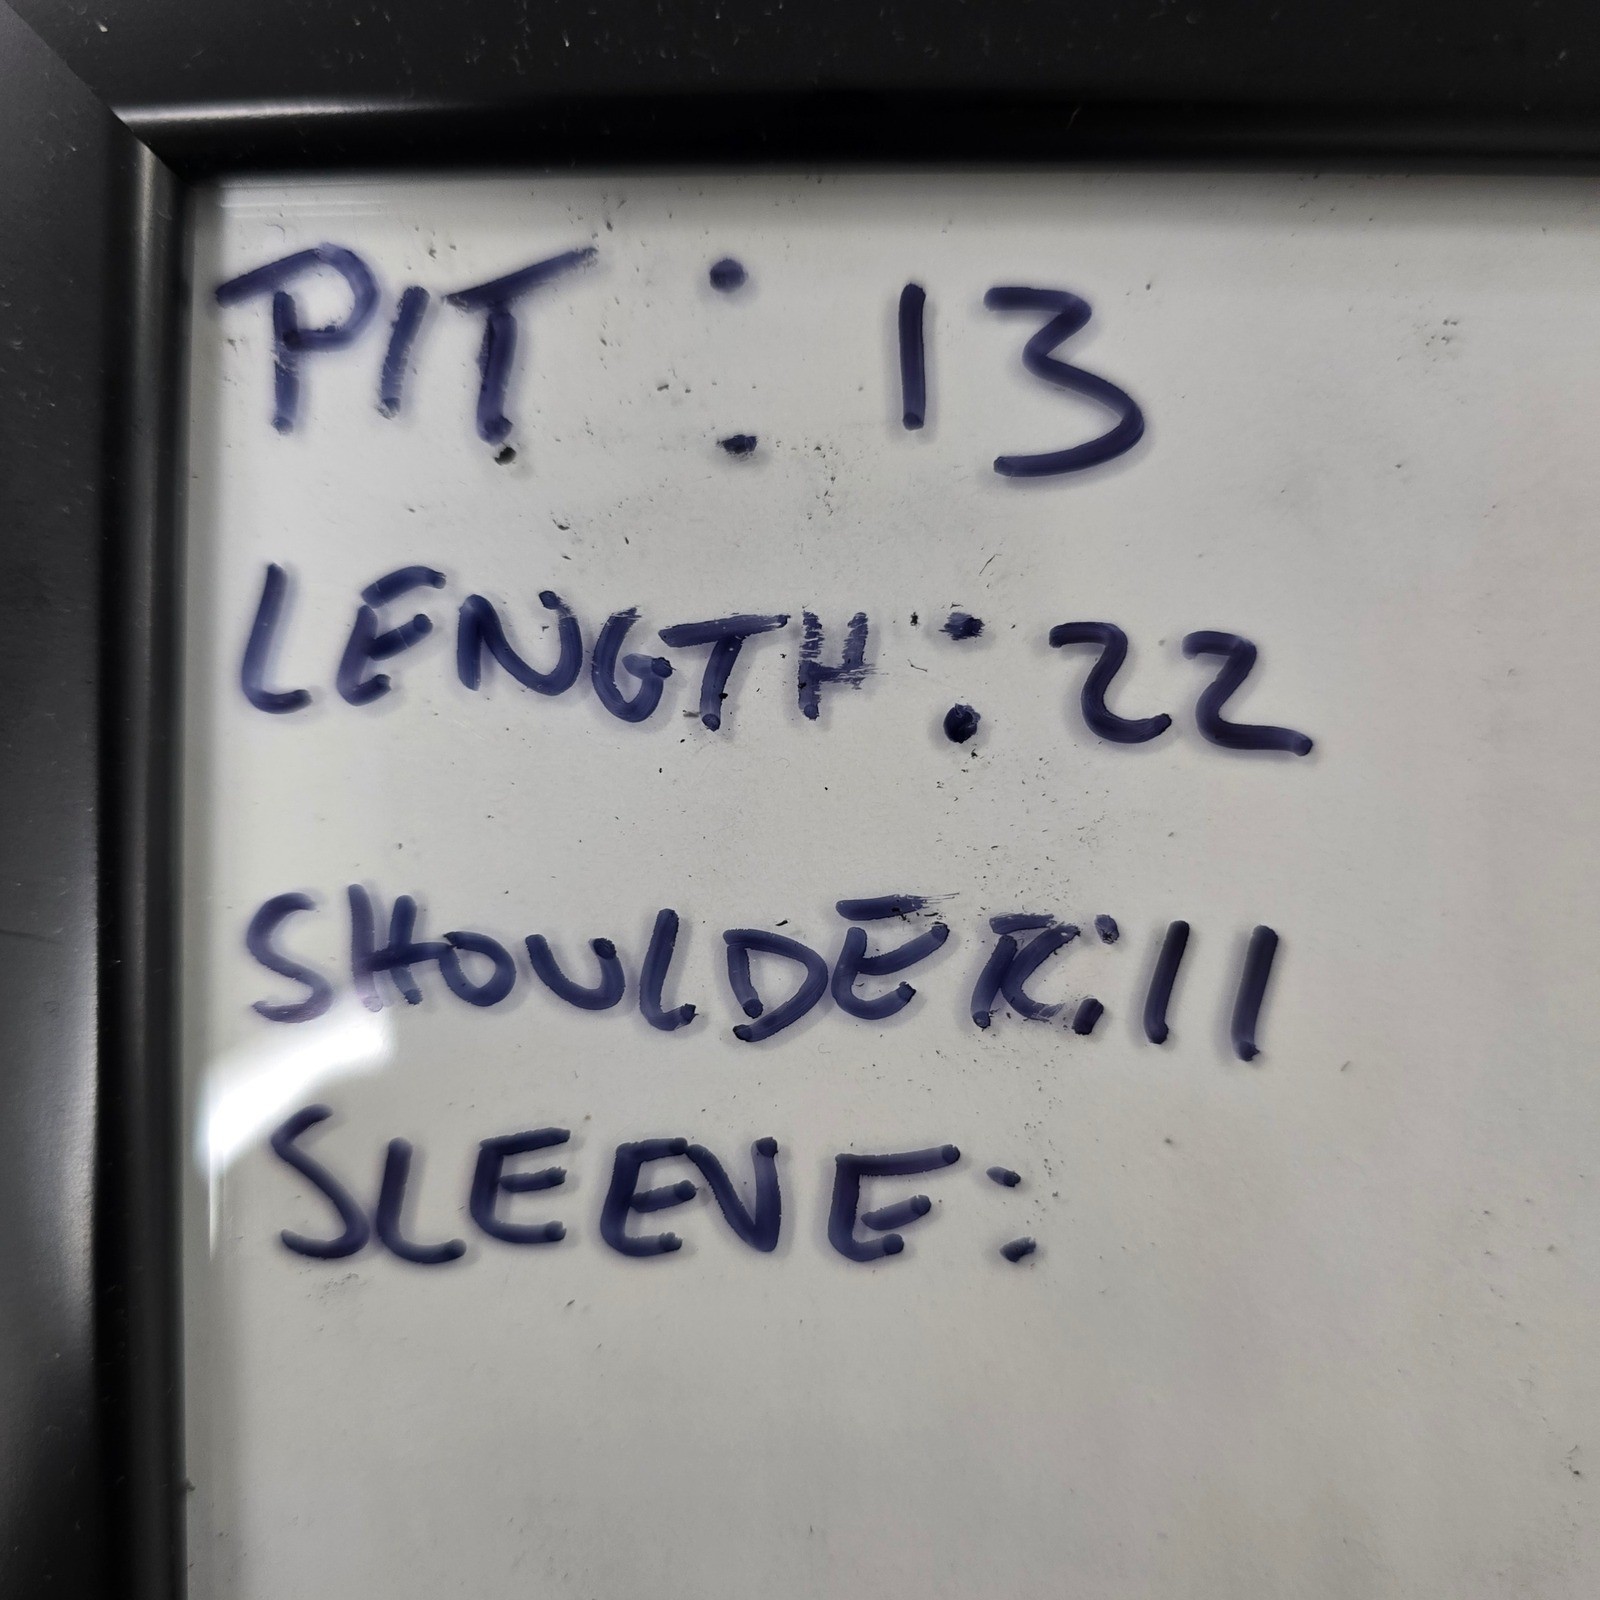 PIT : 13
LENGTH : 22
SHOULDER: 11
SLEEVE: